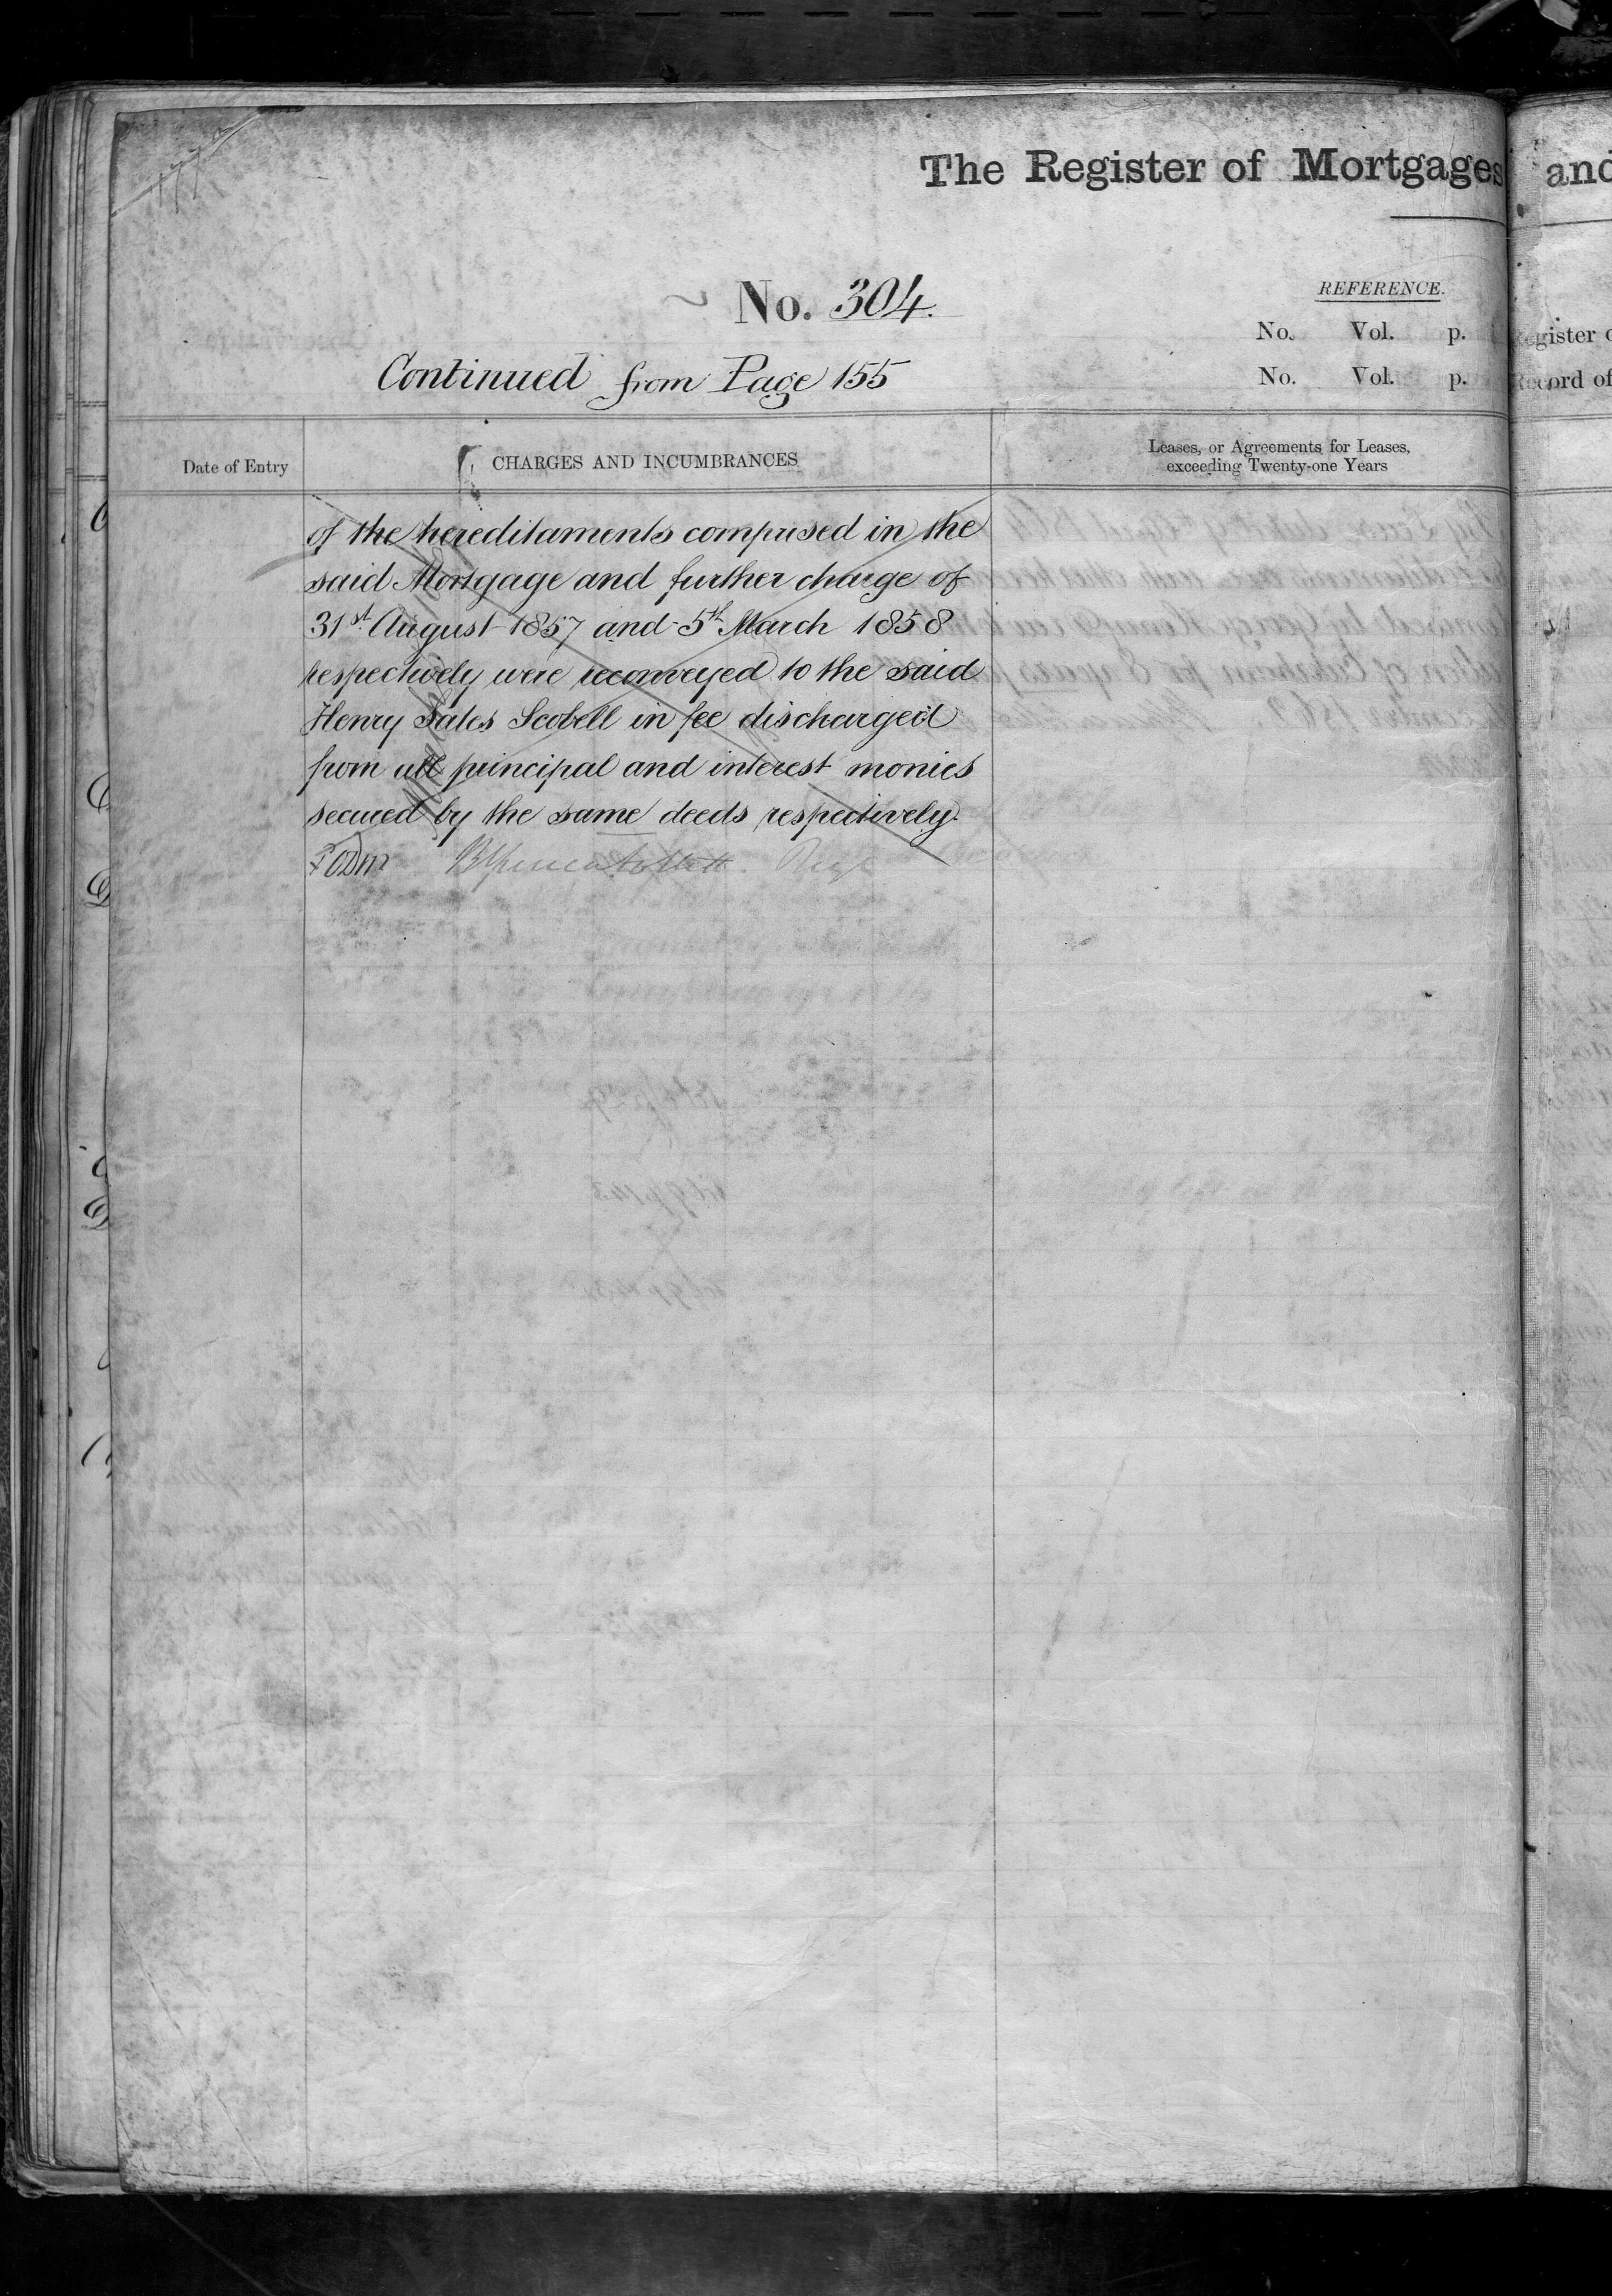 The Register of Mortgages and
No. 304.
REFERENCE.
No. Vol. p.
No. Vol. p.
Continued from Page 155
Date of Entry
CHARGES AND INCUMBRANCES
Leases, or Agreements for Leases,
exceeding Twenty-one Years
of the hereditaments comprised in the
said Mortgage and further charge of
31st August 1857 and 5th March 1858
respectively were reconveyed to the said
Henry Sales Scobell in fee discharged
from all principal and interest monies
secured by the same deeds respectively.